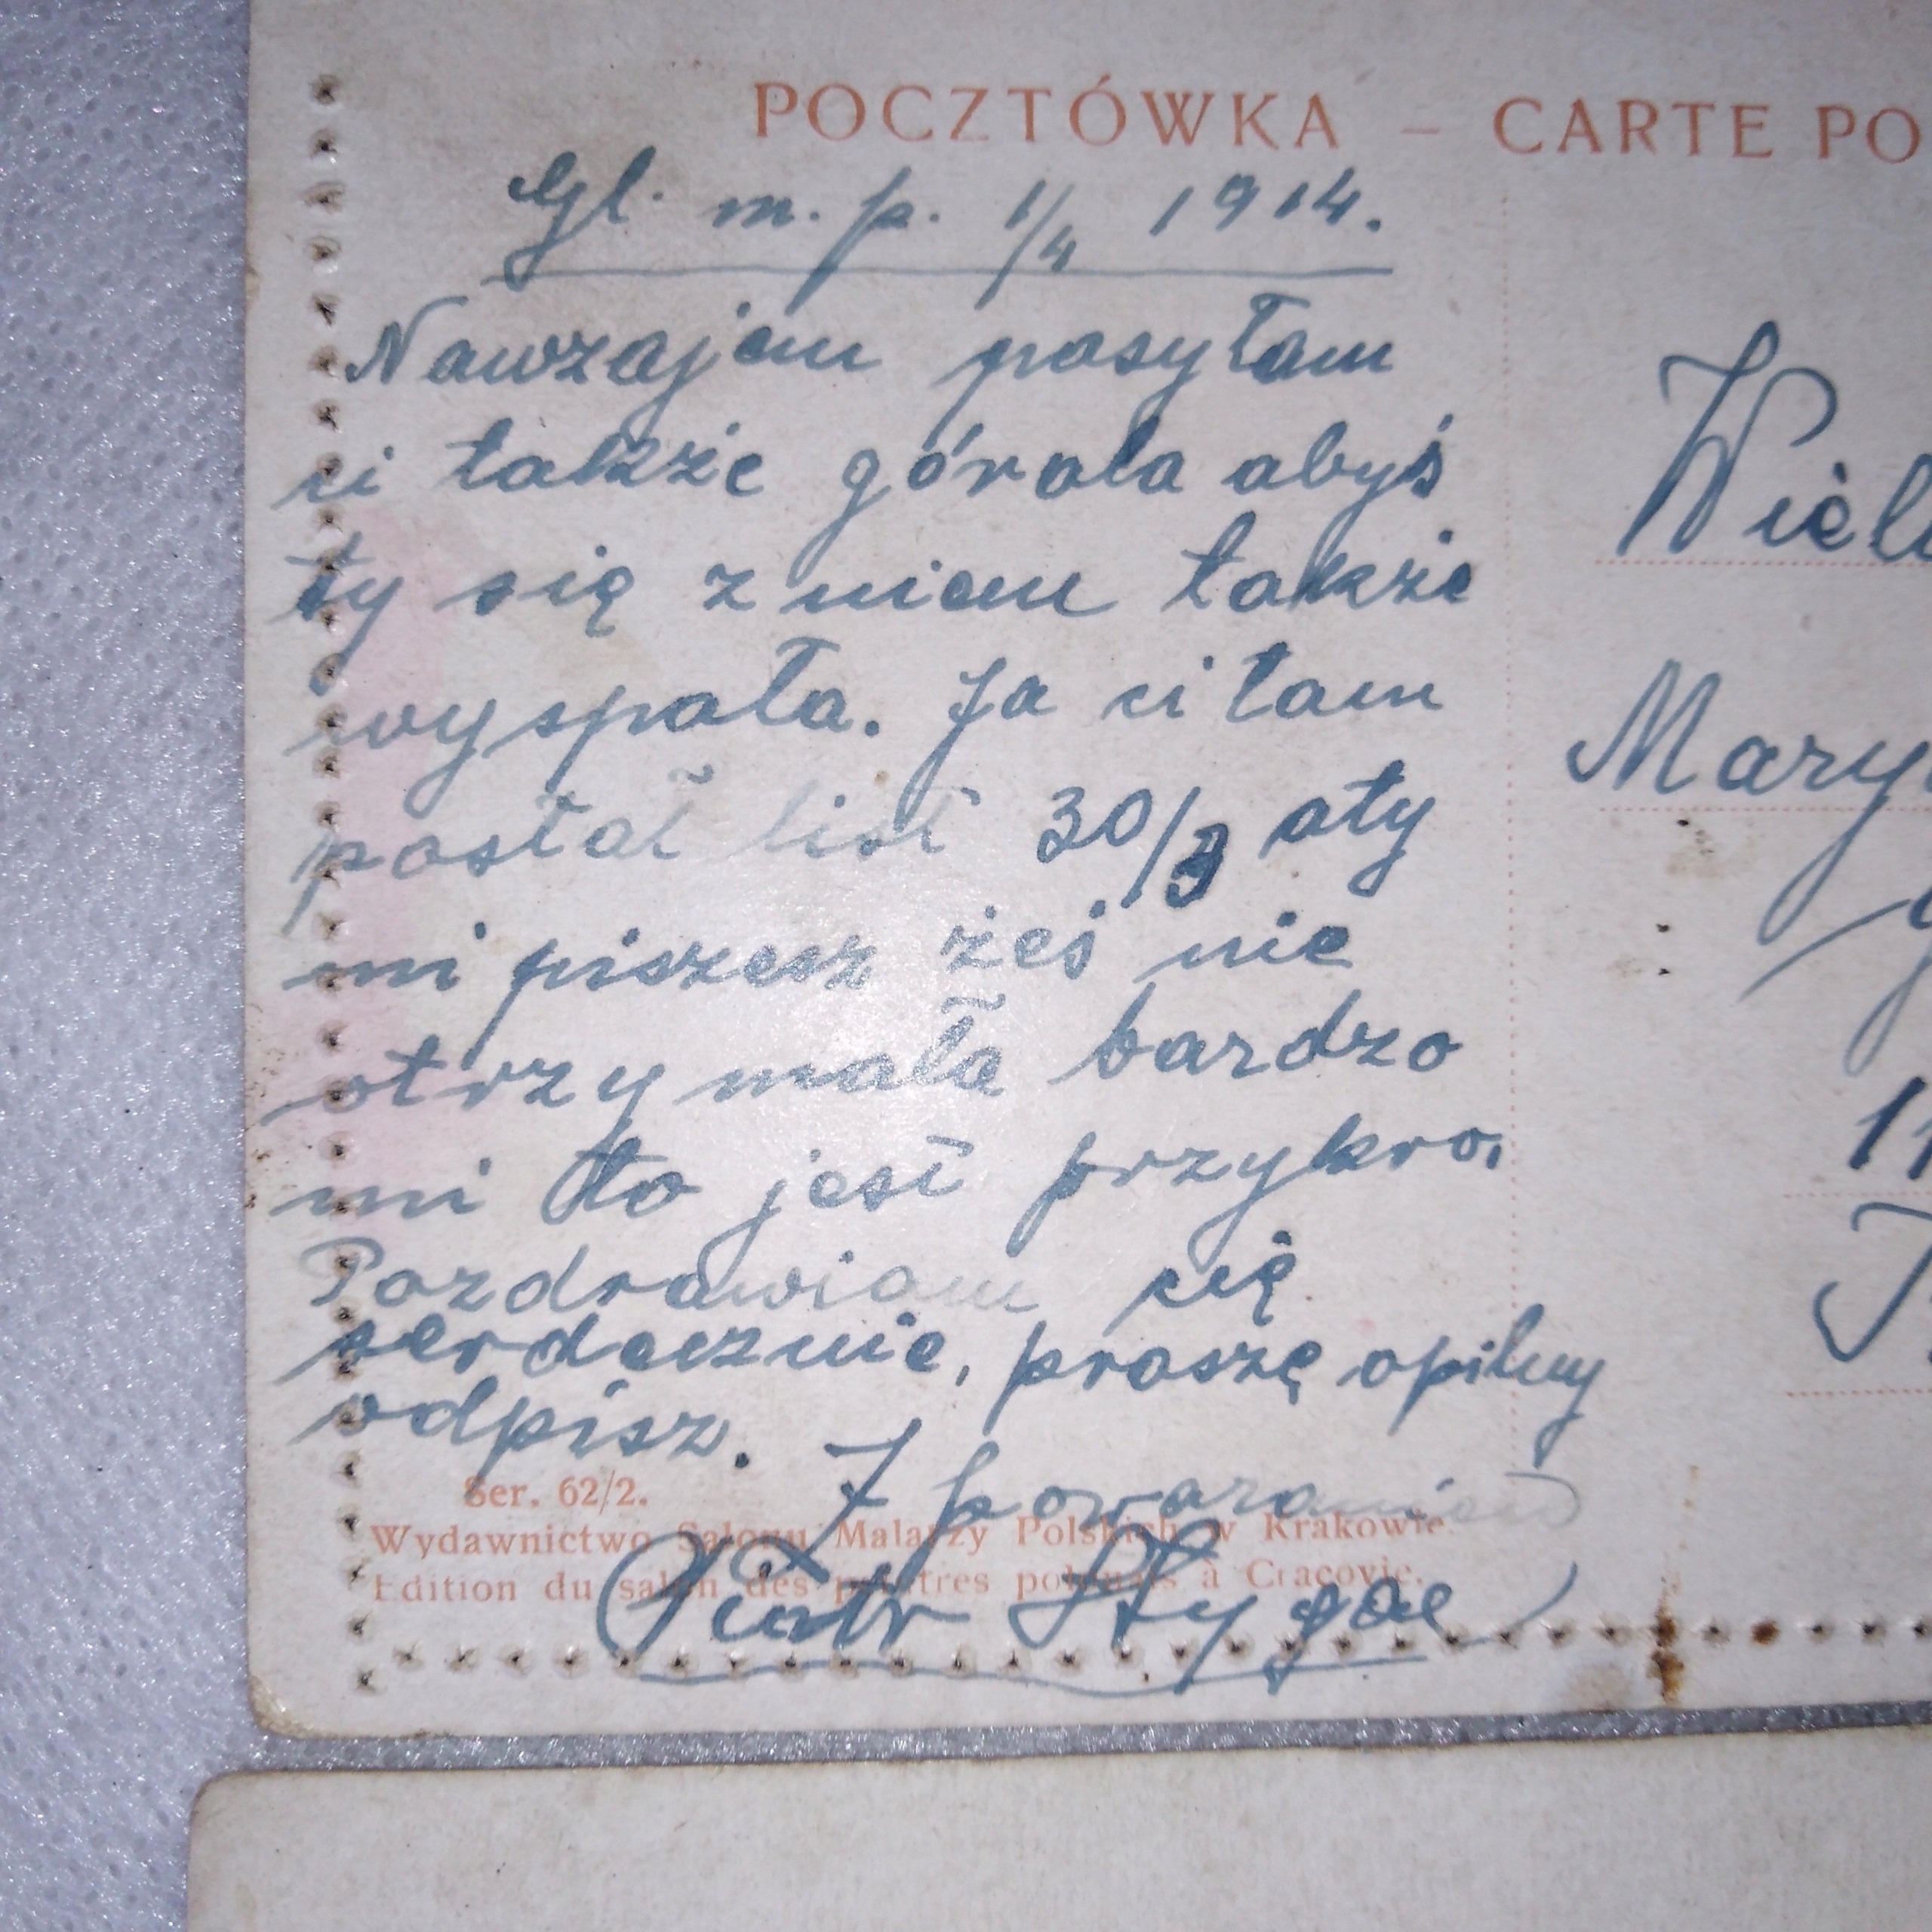 POCZTÓWKA – CARTE PO
Gl. m. p. 1/4 1914.
Nawzajem posyłam
ci także górala abyś
ty się z niem także
wyspała. Ja ci tam
posłał list 30/3 aty
mi piszesz żeś nie
otrzymała bardzo
mi to jest przykro.
Pozdrawiam cię
serdecznie, proszę opilny
odpisz.
Z powarzaniem
Piotr
Ser. 62/2.
Wydawnictwo Salonu Malarzy Polskich w Krakowie.
Edition du salon des peintres polonais à Cracovie.
Wiel
Mary